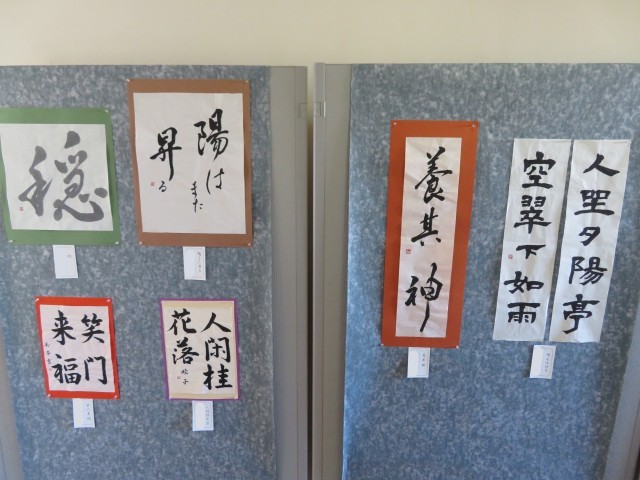 穏
陽は
また
昇る
笑門
来福
人閑桂
花落
養其神
人坐夕陽亭
空翠下如雨